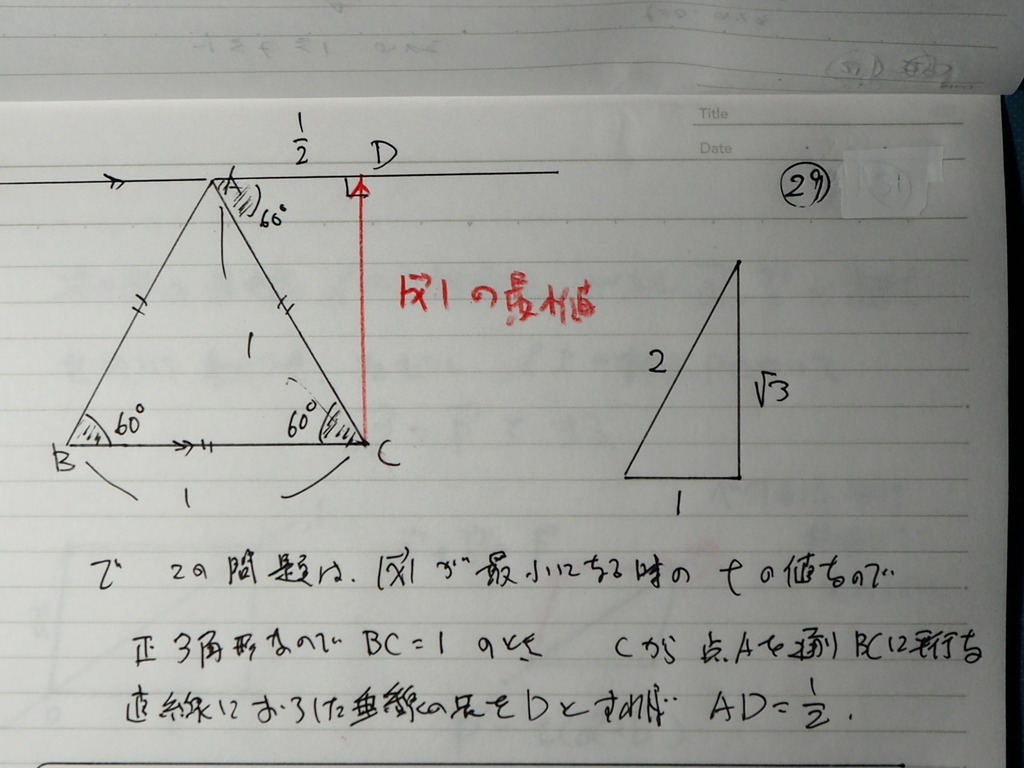 Title
Date
29
1/2
D
A
60°
|x⃗|の最小値
1
2
√3
60°
60°
B
C
1
1
で この問題は、|x⃗|が最小になる時の tの値なので
正3角形なので BC=1 のとき Cから 点Aを通り BCに平行な
直線におろした垂線の足を Dとすれば AD=1/2.